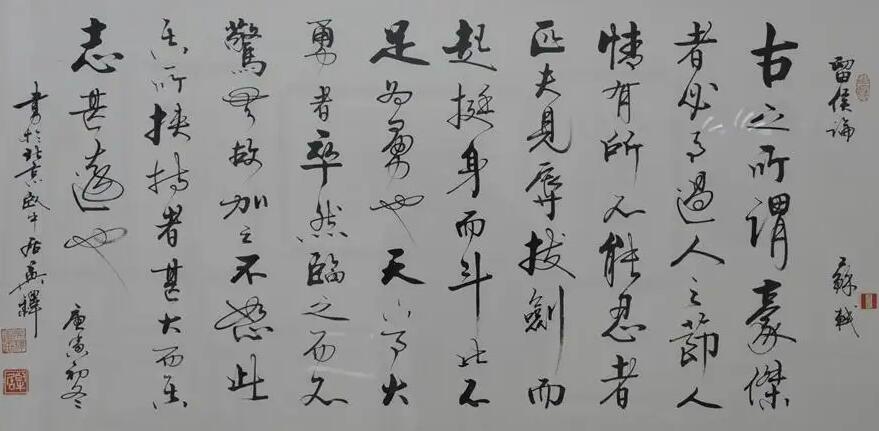 留侯論
蘇軾
古之所謂豪傑
者必有過人之節人
情有所不能忍者
匹夫見辱拔劍而
起挺身而斗此不
足為勇也天下有大
勇者卒然臨之而不
驚無故加之不怒此
其所挾持者甚大而其
志甚遠也
庚寅初冬
書於北京